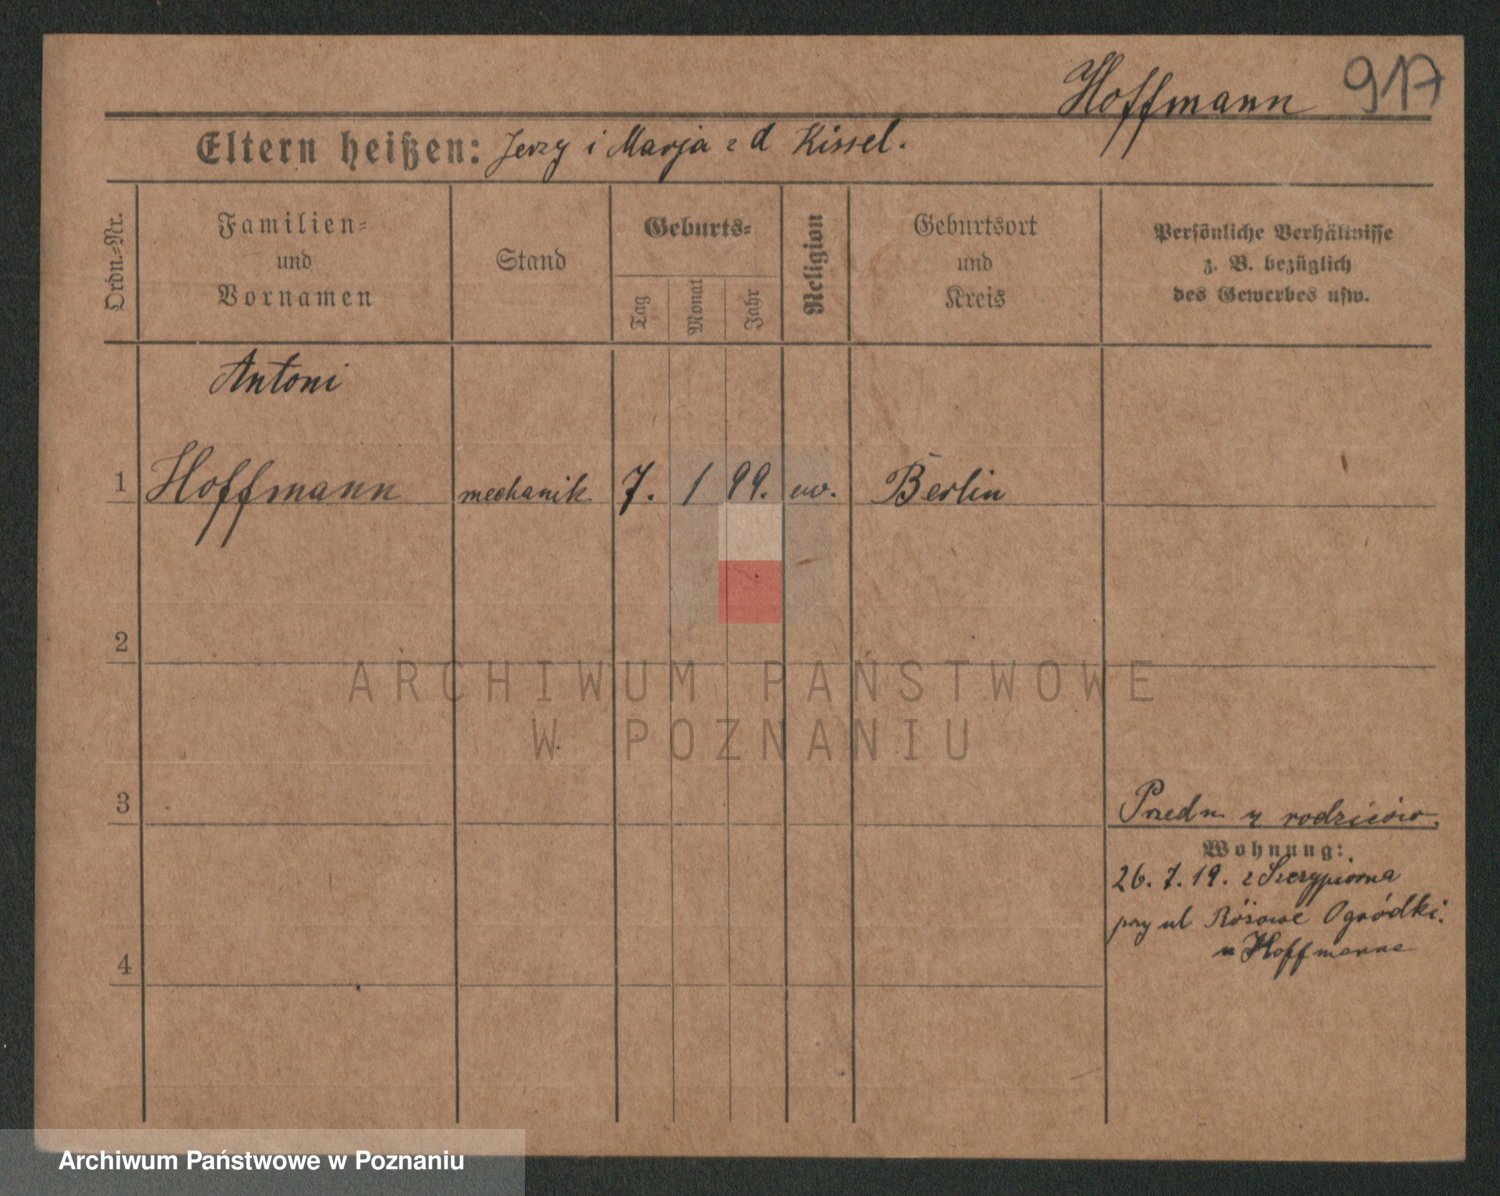 Hoffmann 917
Eltern heißen: Jerzy i Marja z d Kissel.
Ordn.-Nr.
Familien-
und
Vornamen
Stand
Geburts-
Tag
Monat
Jahr
Religion
Geburtsort
und
Kreis
Persönliche Verhältnisse
z. B. bezüglich
des Gewerbes usw.
Antoni
1 Hoffmann mechanik 7. 1 99. ew. Berlin
2
ARCHIWUM PAŃSTWOWE
W POZNANIU
3
Przedm z rodziców.
Wohnung:
26. 7. 19. z Szczypiorna
przy ul Różowe Ogródki.
u Hoffmanna
4
Archiwum Państwowe w Poznaniu